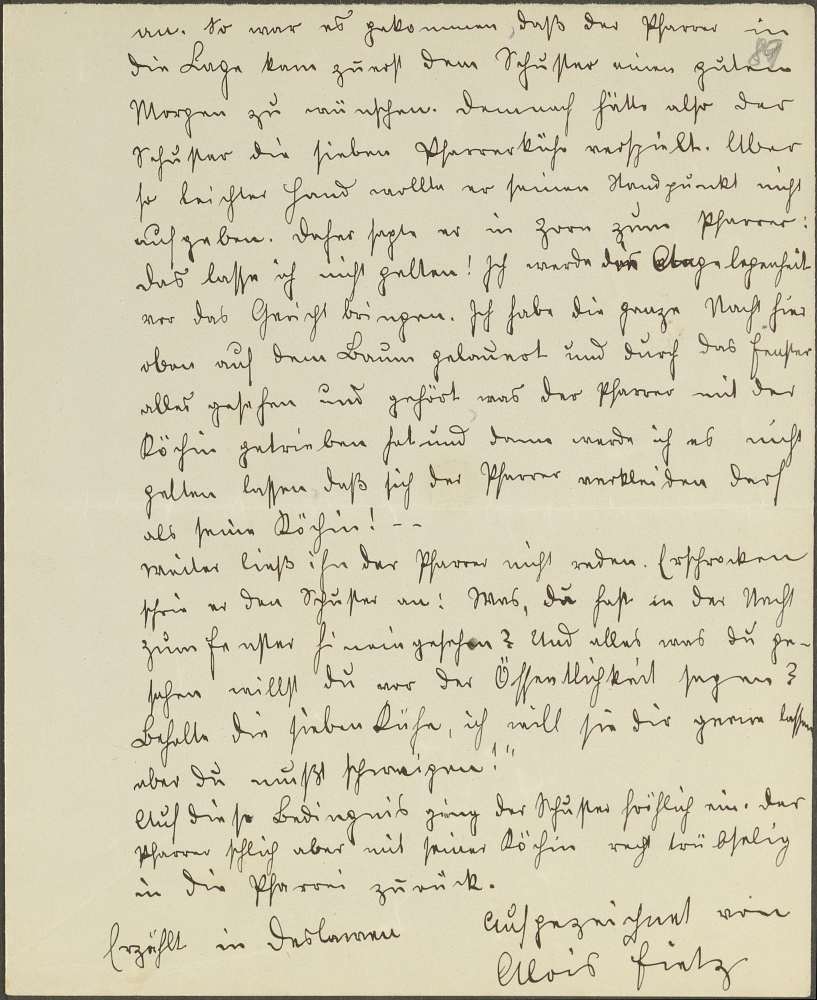 89
an. So war es gekommen, daß der Pfarrer in
die Lage kam zuerst dem Schuster einen guten
Morgen zu wünschen. Demnach hätte also der
Schuster die sieben Pfarrerkühe verspielt. Aber
so leichter Hand wollte er seinen Standpunkt nicht
aufgeben. Daher sagte er in Zorn zum Pfarrer:
das lasse ich nicht gelten! Ich werde die Angelegenheit
vor das Gericht bringen. Ich habe die ganze Nacht hier
oben auf dem Baum gelauert und durch das Fenster
alles gesehen und gehört was der Pfarrer mit der
Köchin getrieben hat und dann werde ich es nicht
gelten lassen daß sich der Pfarrer verkleiden darf
als seine Köchin! --
Weiter ließ ihn der Pfarrer nicht reden. Erschrocken
schrie er den Schuster an: Was, du hast in der Nacht
zum Fenster hineingesehen? Und alles was du ge-
sehen willst du vor der Öffentlichkeit sagen?
Behalte die sieben Kühe, ich will sie dir gerne lassen
aber du mußt schweigen!"
Auf diese Bedingnis ging der Schuster fröhlich ein. Der
Pfarrer schlich aber mit seiner Köchin recht trübselig
in die Pfarrei zurück.
Erzählt in Deslawen
Aufgezeichnet von
Alois Fietz